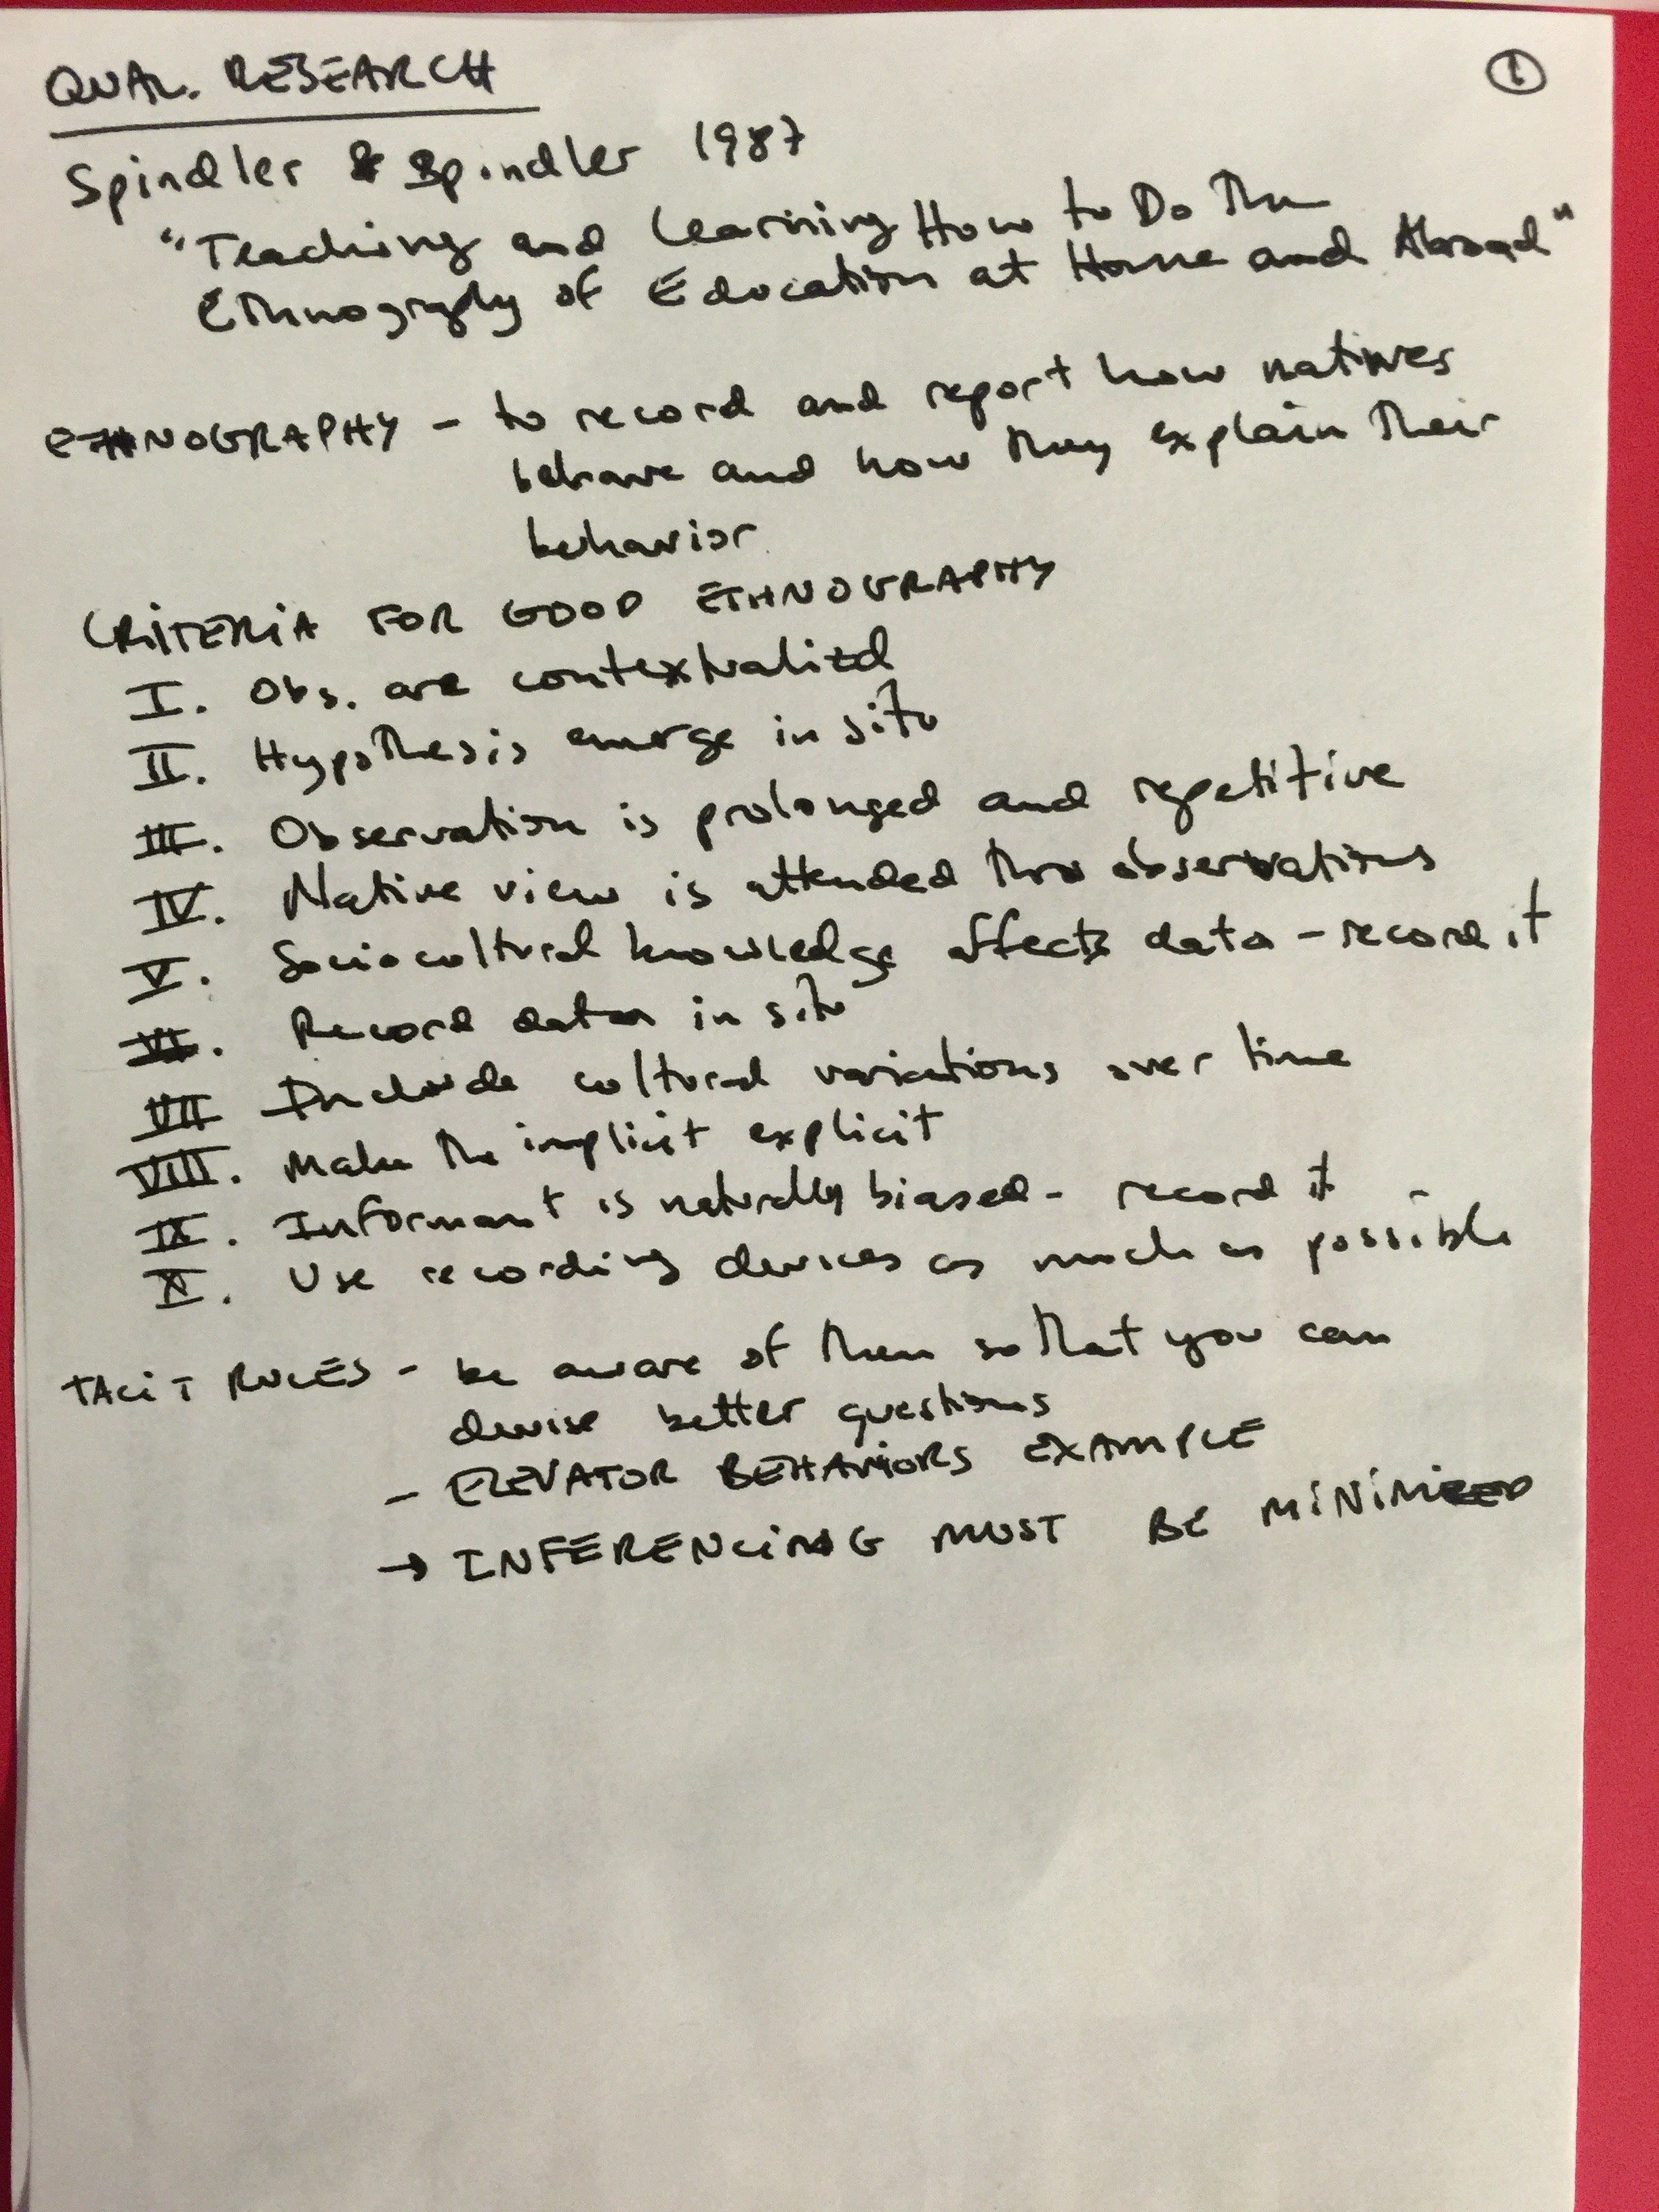 QUAL. RESEARCH
1
Spindler & Spindler 1987
"Teaching and Learning How to Do The
Ethnography of Education at Home and Abroad"
ETHNOGRAPHY - to record and report how natives
behave and how they explain their
behavior
CRITERIA FOR GOOD ETHNOGRAPHY
I. Obs. are contextualized
II. Hypothesis emerge in situ
III. Observation is prolonged and repetitive
IV. Native view is attended thru observations
V. Sociocultural knowledge affects data - record it
VI. Record data in situ
VII Include cultural variations over time
VIII. Make the implicit explicit
IX. Informant is naturally biased - record it
X. Use recording devices as much as possible
TACIT RULES - be aware of them so that you can
devise better questions
- ELEVATOR BEHAVIORS EXAMPLE
→ INFERENCING MUST BE MINIMIZED